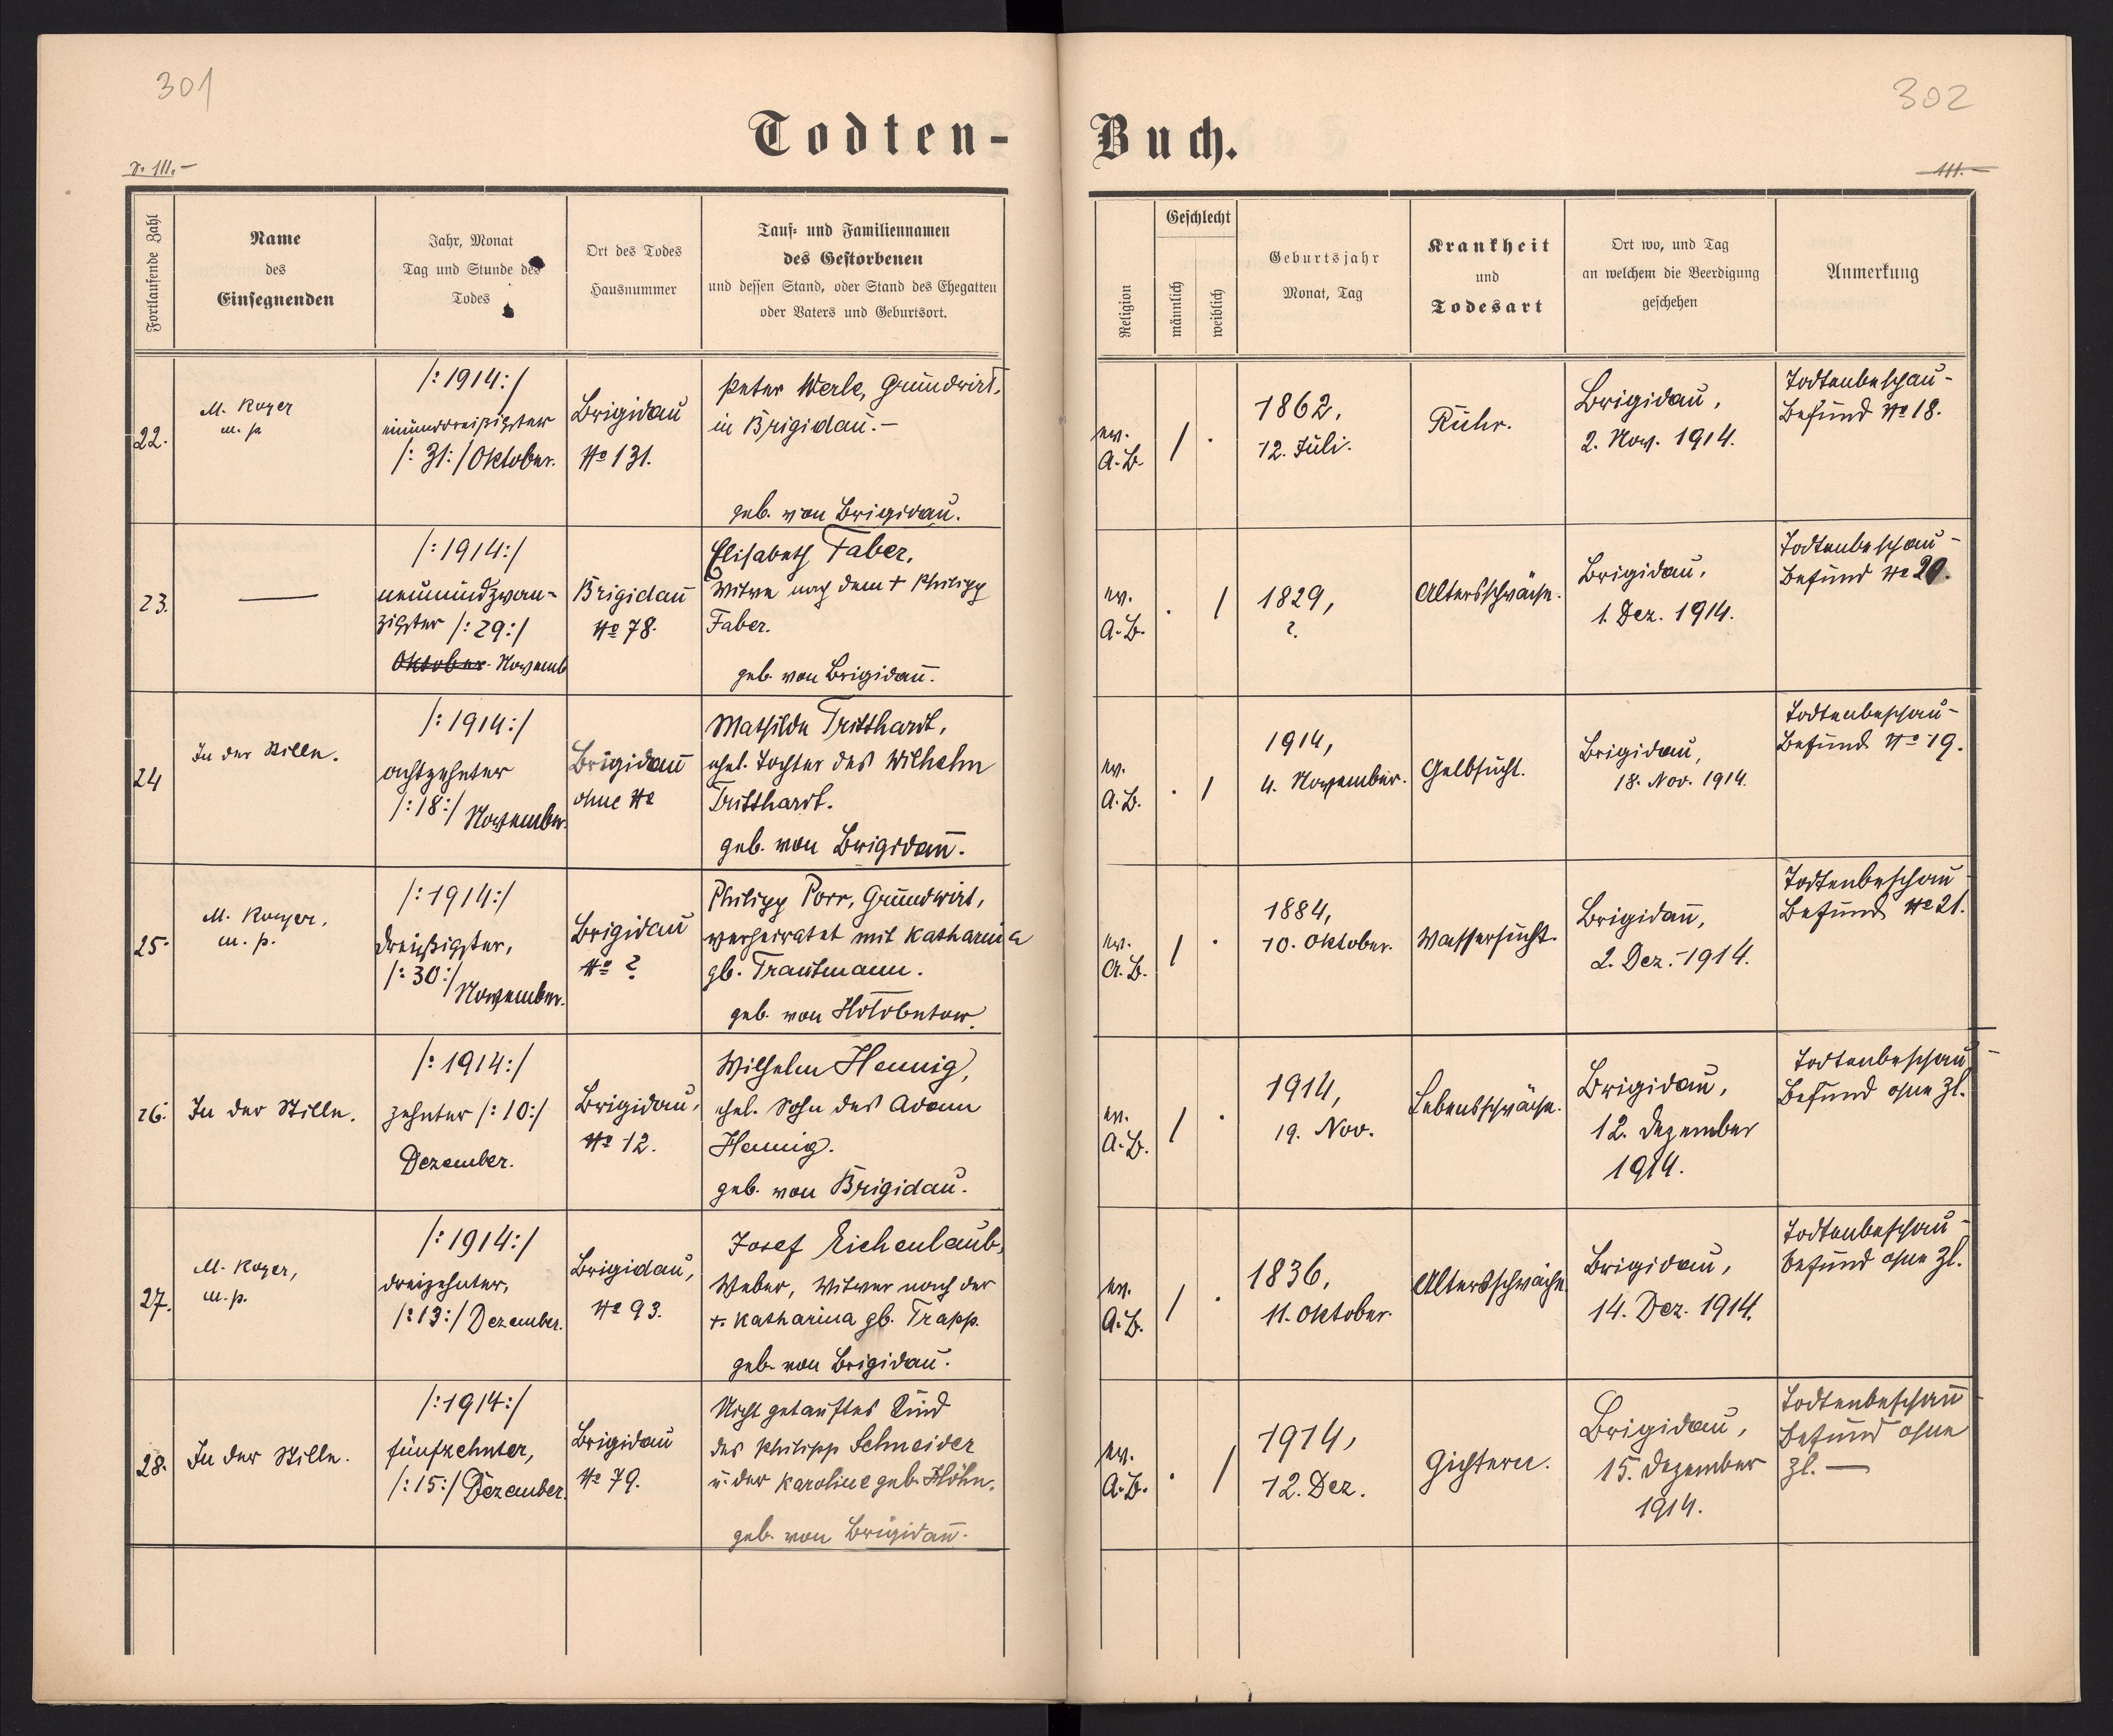 301
302
Todten-
Buch.
S. 111.-
111.-
Fortlaufende Zahl
Name
des
Einsegnenden
Jahr, Monat
Tag und Stunde des
Todes
Ort des Todes
Hausnummer
Tauf- und Familiennamen
des Gestorbenen
und dessen Stand, oder Stand des Ehegatten
oder Vaters und Geburtsort.
Religion
Geschlecht
männlich
weiblich
Geburtsjahr
Monat, Tag
Krankheit
und
Todesart
Ort wo, und Tag
an welchem die Beerdigung
geschehen
Anmerkung
22.
M. Royer
m. p.
/:1914:/
einunddreißigster
/:31:/ Oktober.
Brigidau
No 131.
Peter Werle, Grundwirt,
in Brigidau.-
geb. von Brigidau.
ev.
A.B.
/ .
1862,
12. Juli.
Ruhr.
Brigidau,
2. Nov. 1914.
Todtenbeschau-
Befund No 18.
23.
—
/:1914:/
neunundzwan-
zigster /:29:/
Oktober Novemb
Brigidau
No 78.
Elisabeth Faber,
Witwe nach dem + Philipp
Faber.
geb. von Brigidau.
ev.
A.B.
. /
1829,
?.
Altersschwäche.
Brigidau,
1. Dez. 1914.
Todtenbeschau-
Befund No 20.
24
In der Stille.
/:1914:/
achtzehnter
/:18:/ November.
Brigidau
ohne No
Mathilde Tritthardt,
ehel. Tochter des Wilhelm
Tritthardt.
geb. von Brigidau.
ev.
A.B.
. /
1914,
4. November.
Gelbsucht.
Brigidau,
18. Nov. 1914.
Todtenbeschau-
Befund No 19.
25.
M. Royer,
m. p.
/:1914:/
dreißigster,
/:30:/ November.
Brigidau
No ?
Philipp Porr, Grundwirt,
verheiratet mit Katharina
gb. Trautmann.
geb. von Hołobutow.
ev.
A.B.
/ .
1884,
10. Oktober.
Wassersucht.
Brigidau,
2. Dez. 1914.
Todtenbeschau
Befund No 21.
26.
In der Stille.
/:1914:/
zehnter /:10:/
Dezember.
Brigidau,
No 12.
Wilhelm Hennig,
ehel. Sohn des Adam
Hennig.
geb. von Brigidau.
ev.
A.B.
/ .
1914,
19. Nov.
Lebensschwäche.
Brigidau,
12. Dezember
1914.
Todtenbeschau-
Befund ohne Zl.
27.
M. Royer,
m. p.
/:1914:/
dreizehnter,
/:13:/ Dezember.
Brigidau,
No 93.
Josef Eichenlaub,
Weber, Witwer nach der
+. Katharina gb. Trapp.
geb. von Brigidau.
ev.
A.B.
/ .
1836,
11. Oktober.
Altersschwäche
Brigidau,
14. Dez. 1914.
Todtenbeschau-
befund ohne Zl.
28.
In der Stille.
/:1914:/
fünfzehnter,
/:15:/ Dezember.
Brigidau
No 79.
Nicht getauftes Kind
des Philipp Schneider
u. der Karoline geb. Höhn.
geb. von Brigidau.
ev.
A.B.
. /
1914,
12. Dez.
Gichtern.
Brigidau,
15. Dezember
1914.
Todtenbeschau
befund ohne
Zl.—